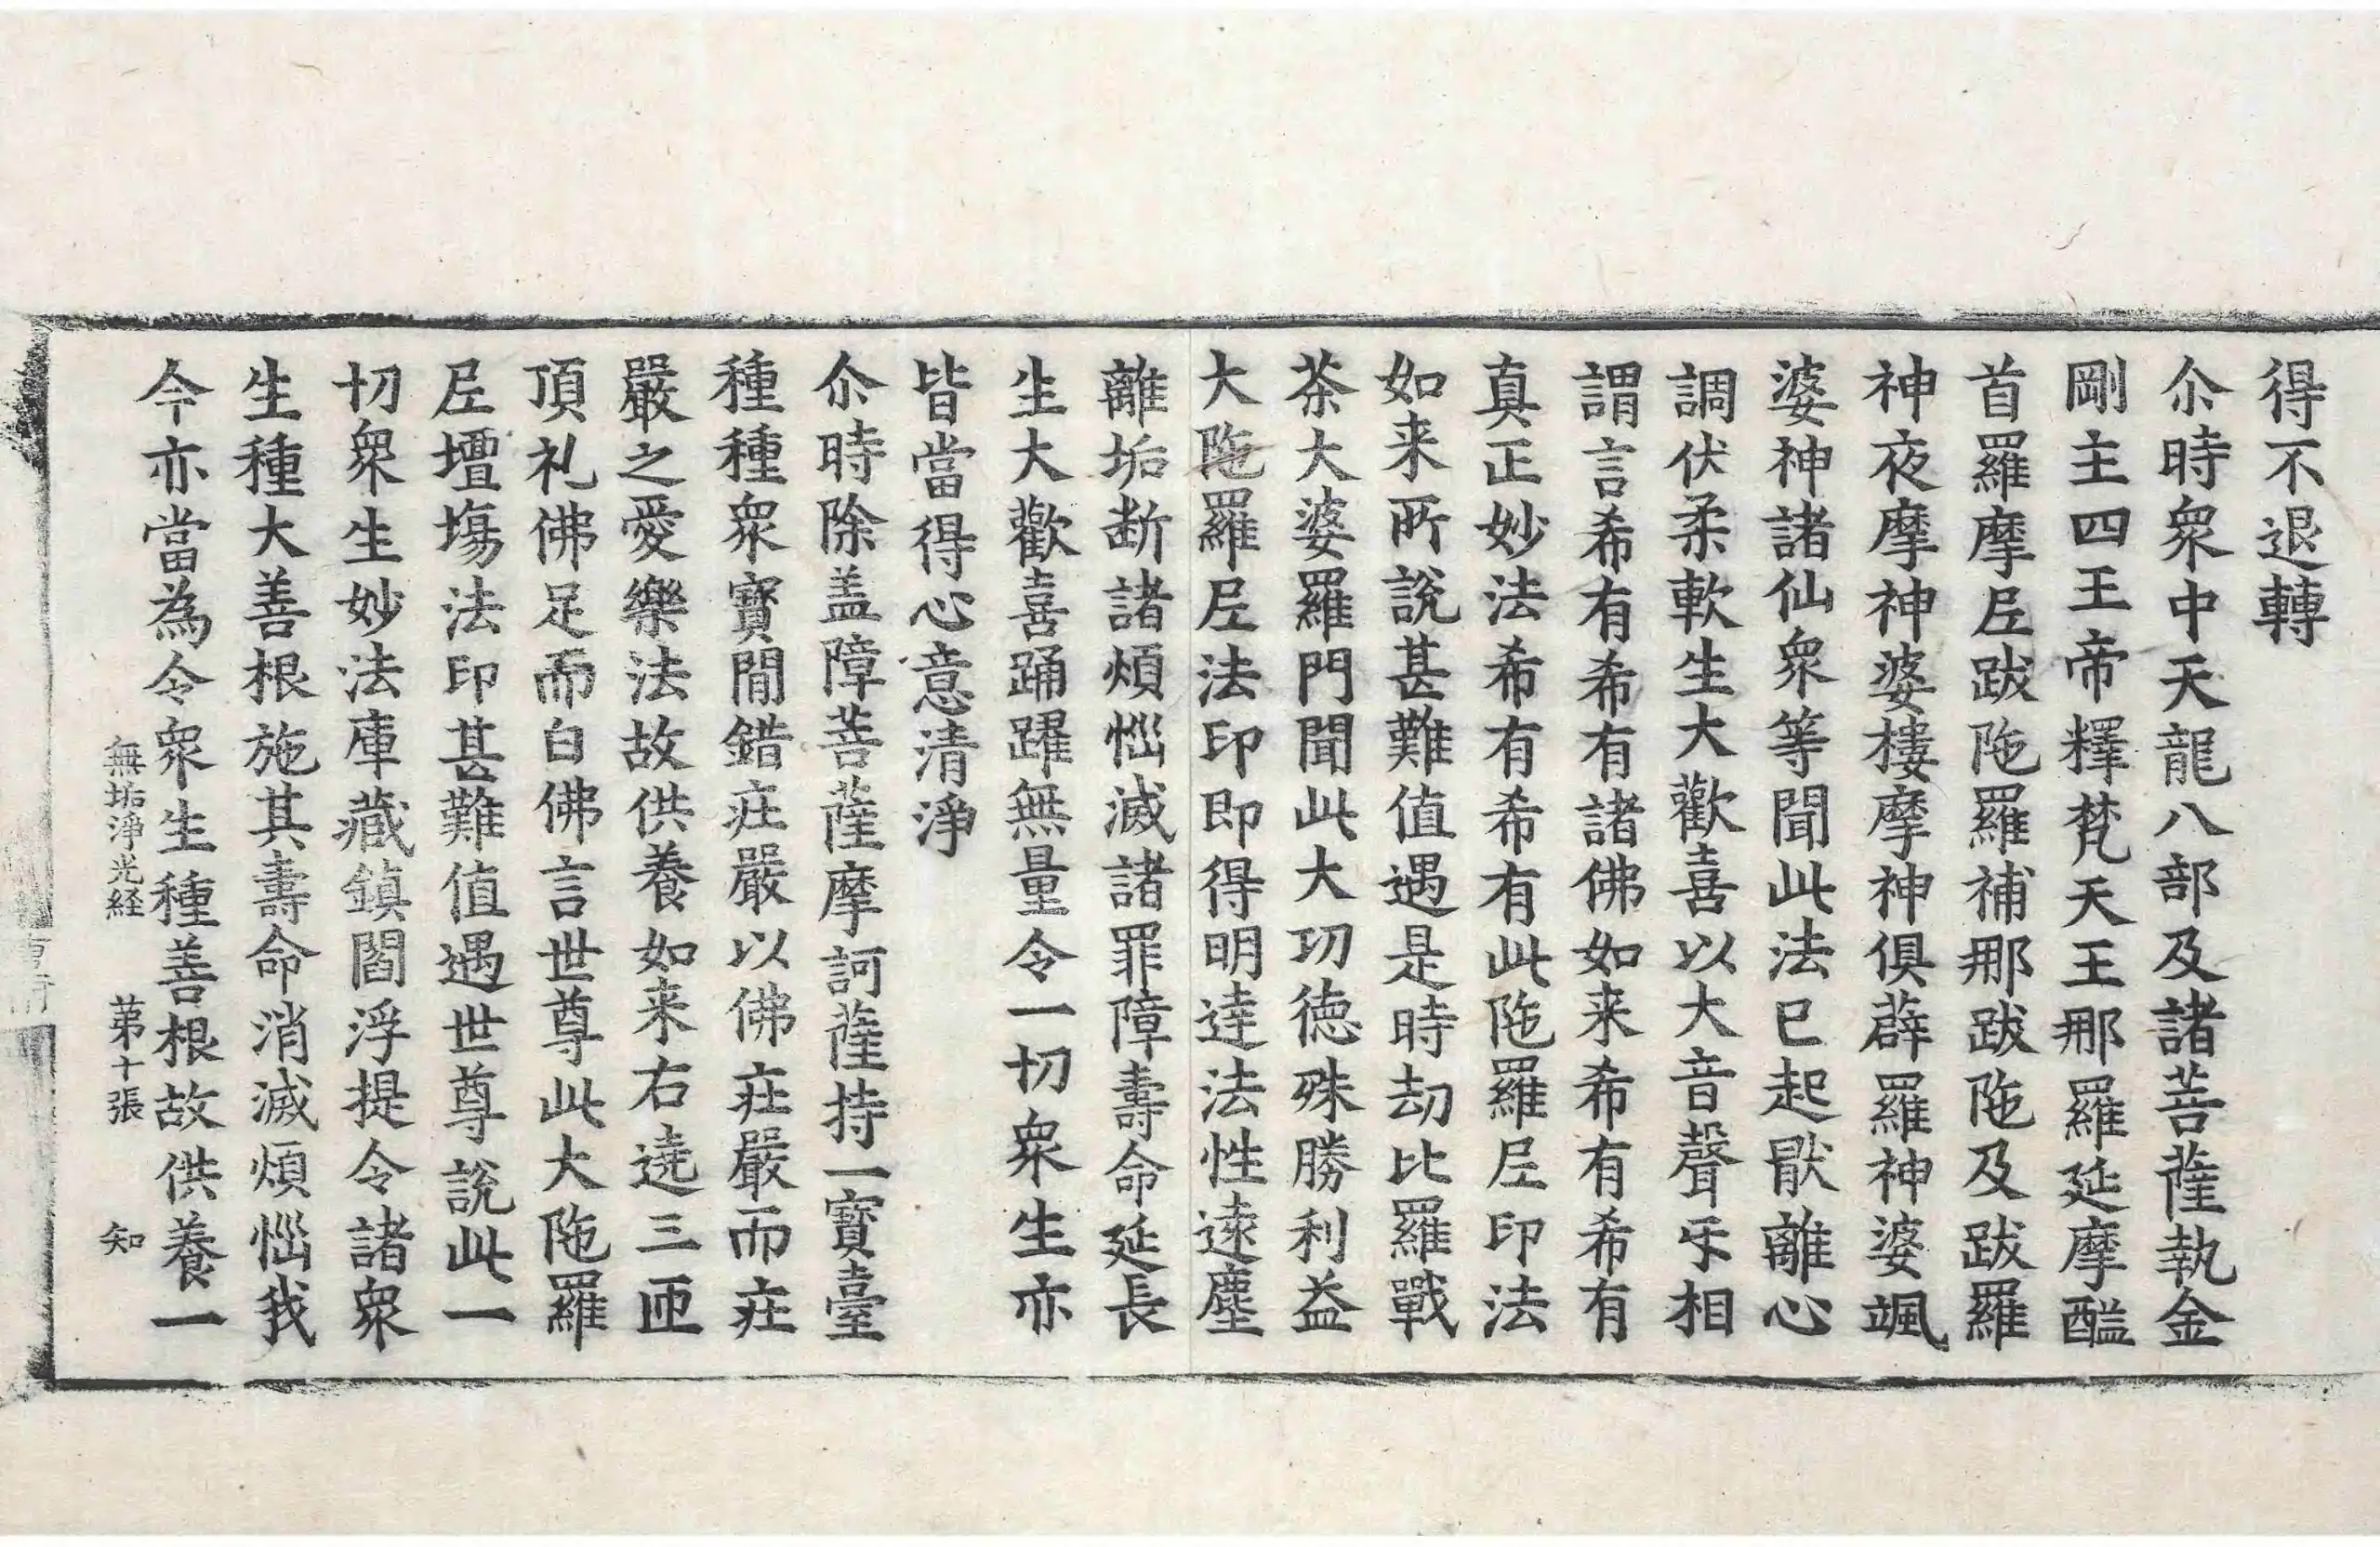 得不退轉
尒時衆中天龍八部及諸菩薩執金
剛主四王帝釋梵天王那羅延摩醯
首羅摩尼跋陁羅補那跋陁及跋羅
神夜摩神婆樓摩神俱薜羅神婆颯
婆神諸仙衆等聞此法已起猒離心
調伏柔軟生大歡喜以大音聲㸦相
謂言希有希有諸佛如来希有希有
真正妙法希有希有此陁羅尼印法
如来所說甚難值遇是時劫比羅戰
茶大婆羅門聞此大功德殊勝利益
大陁羅尼法印即得明達法性遠塵
離垢断諸煩惱滅諸罪障壽命延長
生大歡喜踊躍無量令一切衆生亦
皆當得心意清淨
尒時除盖障菩薩摩訶薩持一寶臺
種種衆寶間錯庄嚴以佛庄嚴而庄
嚴之愛樂法故供養如来右遶三匝
頂礼佛足而白佛言世尊此大陁羅
尼壇場法印甚難值遇世尊說此一
切衆生妙法庫藏鎮閻浮提令諸衆
生種大善根施其壽命消滅煩惱我
今亦當為令衆生種善根故供養一
無垢淨光経 苐十張 知